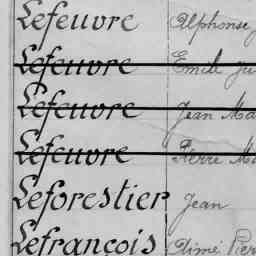 Lefeuvre Alphonse
Lefeuvre Emile
Lefeuvre Jean
Lefeuvre Pierre
Leforestier Jean
Lefrançois Aimé